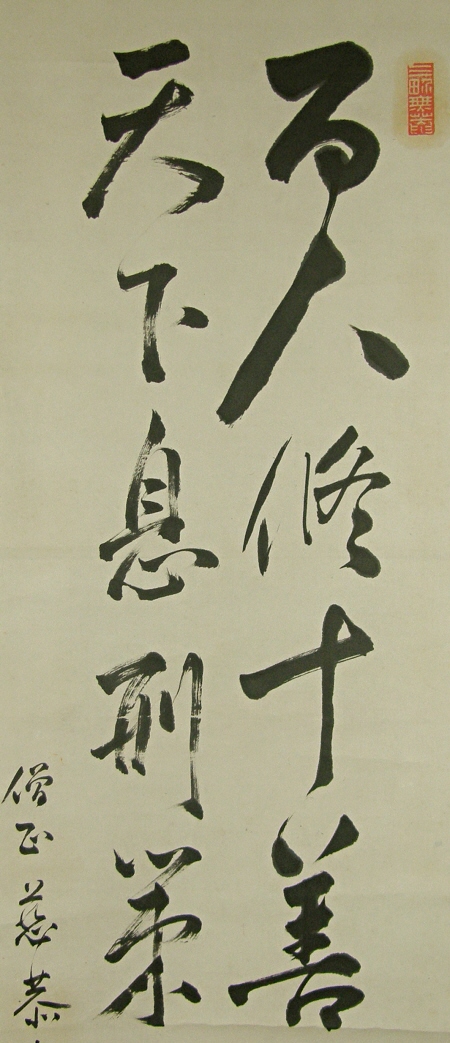 百人修十善
天下息刑策
僧正慈恭